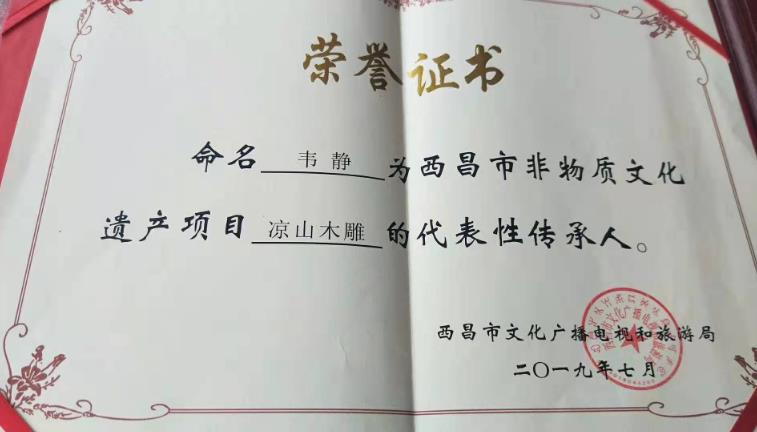 荣誉证书
命名 韦静 为西昌市非物质文化
遗产项目 凉山木雕 的代表性传承人。
西昌市文化广播电视和旅游局
二〇一九年七月